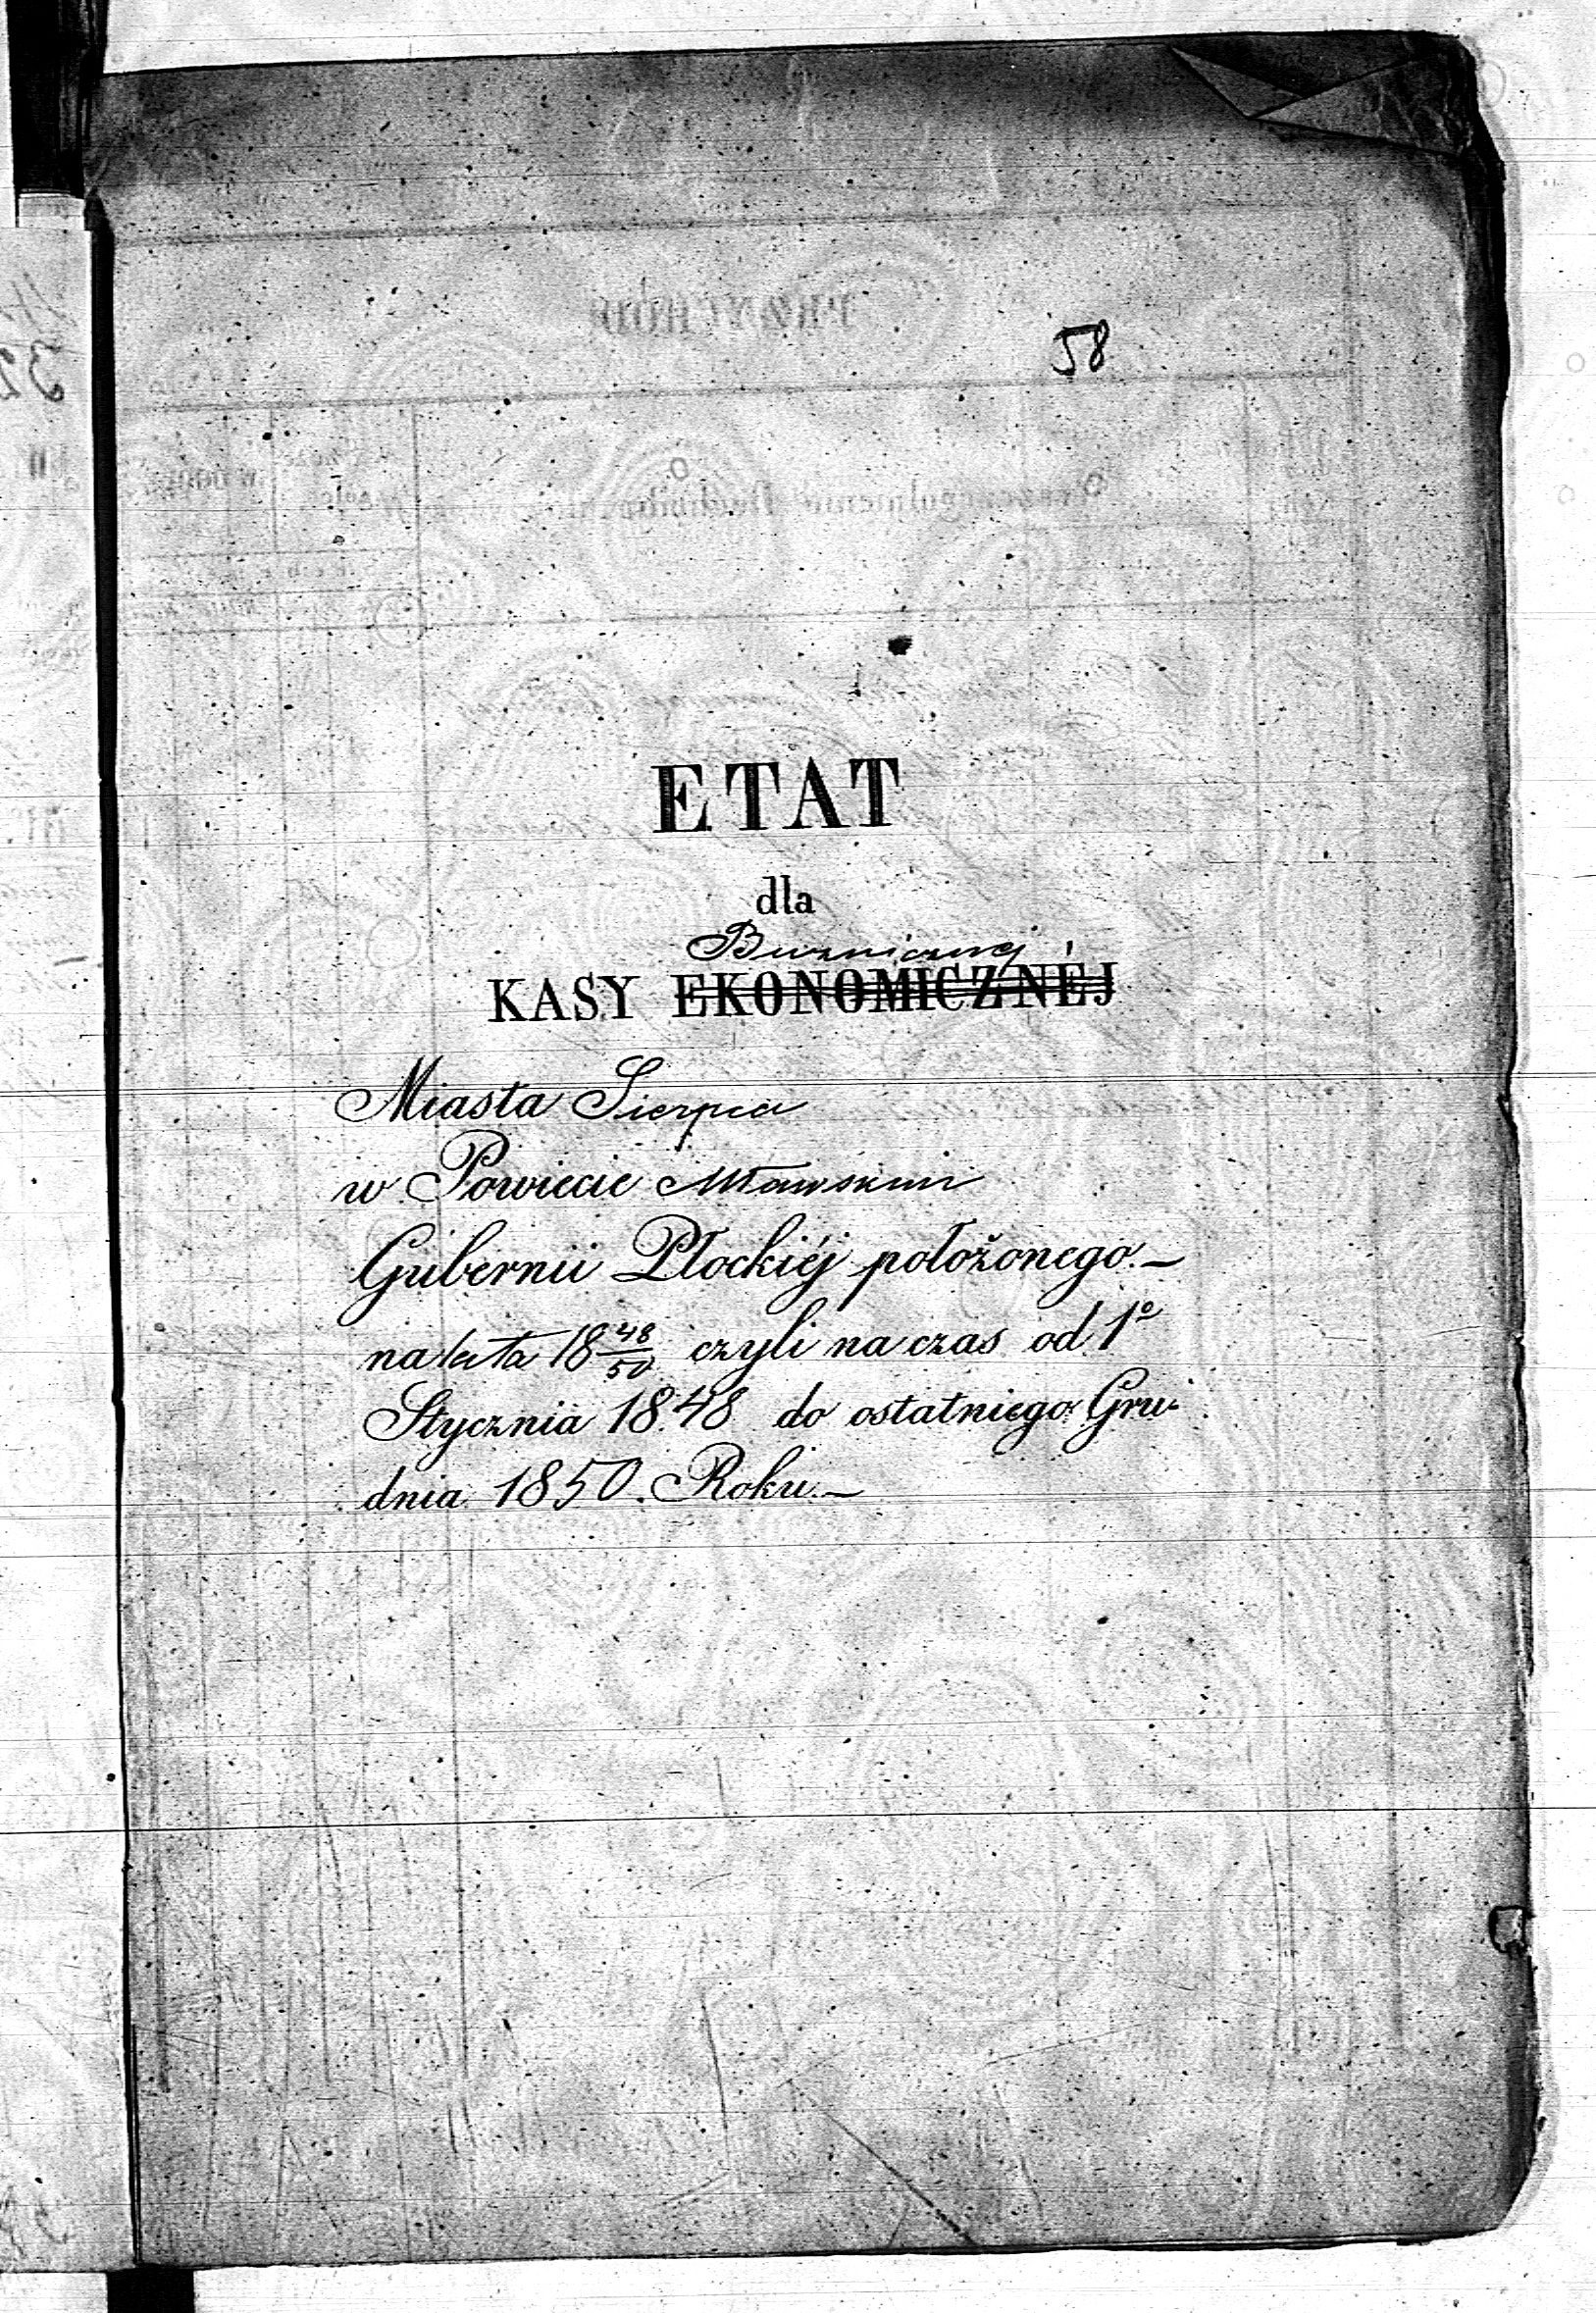 58
ETAT
dla
Bużnicznej
KASY EKONOMICZNÉJ
Miasta Sierpca
w Powiecie Mławskim
Gubernii Płockiéj położonego.—
na lata 18 48/50 czyli na czas od 1º
Stycznia 1848 do ostatniego Gru-
dnia 1850. Roku.—